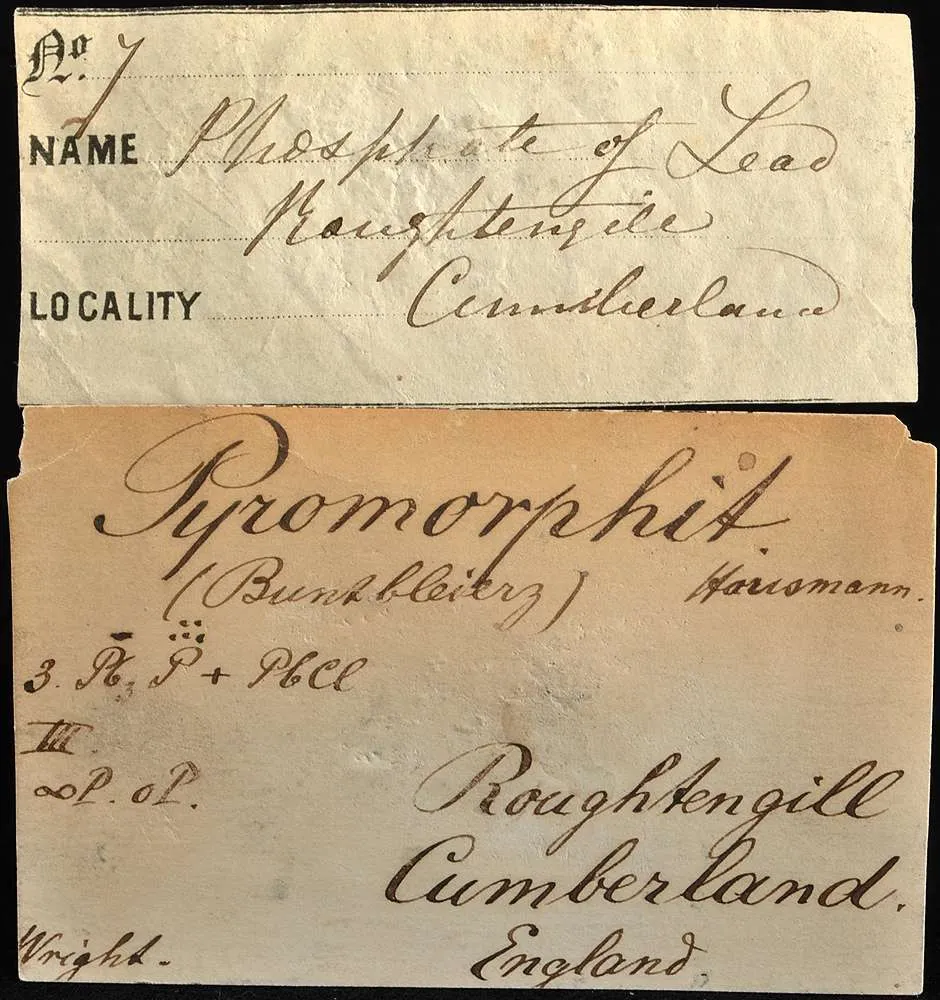 No. 7
NAME Phosphate of Lead
Roughtengill
LOCALITY Cumberland
Pyromorphit.
(Buntbleierz) Hausmann.
3. Pb3 P + PbCl
III.
∞P. oP.
Roughtengill
Cumberland.
Wright. England.